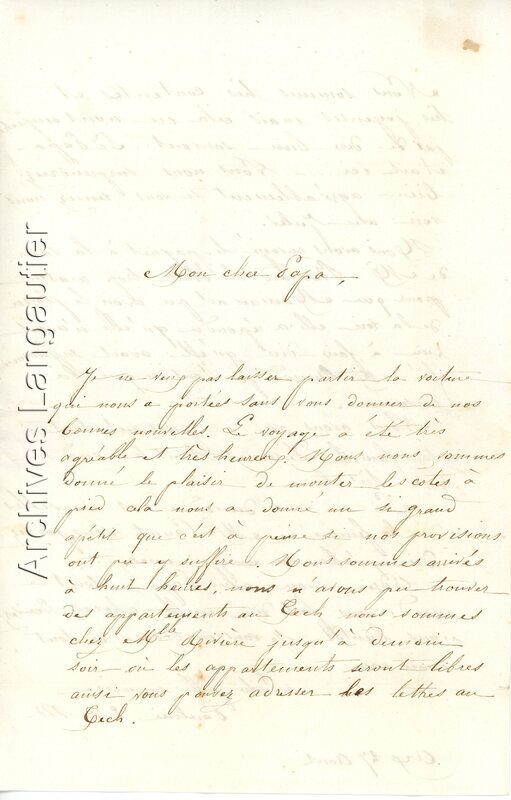 Mon cher Papa,
Je ne veux pas laisser partir la voiture
qui nous a portées sans vous donner de nos
bonnes nouvelles. Le voyage a été très
agréable et très heureux. Nous nous sommes
donné le plaisir de monter les cotes à
pied cela nous a donné un si grand
apétit que c'est à peine si nos provisions
ont pu y suffire. Nous sommes arrivés
à huit heures, nous n'avons pu trouver
des appartements au Tech nous sommes
chez Mlle Rivière jusqu'à demain
soir où les appartements seront libres
ainsi vous pouvez adresser les lettres au
Tech.
Archives Langautier